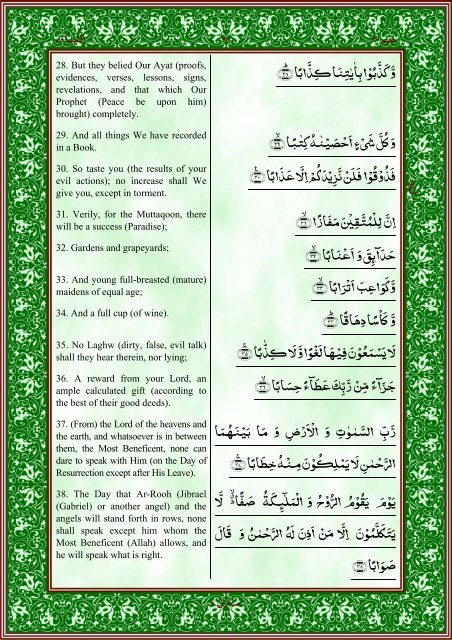 28. But they belied Our Ayat (proofs,
evidences, verses, lessons, signs,
revelations, and that which Our
Prophet (Peace be upon him)
brought) completely.
وَّكَذَّبُوْا بِاٰيٰتِنَا كِذَّابًا ۟ؕ۲۸
29. And all things We have recorded
in a Book.
وَكُلَّ شَیْءٍ اَحْصَيْنٰهُ كِتٰبًا ۟ۙ۲۹
30. So taste you (the results of your
evil actions); no increase shall We
give you, except in torment.
فَذُوْقُوْا فَلَنْ نَّزِيْدَكُمْ اِلَّا عَذَابًا ۟۠۳۰
31. Verily, for the Muttaqoon, there
will be a success (Paradise);
اِنَّ لِلْمُتَّقِيْنَ مَفَازًا ۟ۙ۳۱
32. Gardens and grapeyards;
حَدَآئِقَ وَ اَعْنَابًا ۟ۙ۳۲
33. And young full-breasted (mature)
maidens of equal age;
وَّكَوَاعِبَ اَتْرَابًا ۟ۙ۳۳
34. And a full cup (of wine).
وَّ كَاْسًا دِهَاقًا ۟ؕ۳۴
35. No Laghw (dirty, false, evil talk)
shall they hear therein, nor lying;
لَا يَسْمَعُوْنَ فِيْهَا لَغْوًا وَّلَا كِذّٰبًا ۟ۚ۳۵
36. A reward from your Lord, an
ample calculated gift (according to
the best of their good deeds).
جَزَآءً مِّنْ رَّبِّكَ عَطَآءً حِسَابًا ۟ۙ۳۶
37. (From) the Lord of the heavens and
the earth, and whatsoever is in between
them, the Most Beneficent, none can
dare to speak with Him (on the Day of
Resurrection except after His Leave).
رَّبِّ السَّمٰوٰتِ وَ الْاَرْضِ وَ مَا بَيْنَهُمَا
الرَّحْمٰنِ لَا يَمْلِكُوْنَ مِنْهُ خِطَابًا ۟ۚ۳۷
38. The Day that Ar-Rooh (Jibrael
(Gabriel) or another angel) and the
angels will stand forth in rows, none
shall speak except him whom the
Most Beneficent (Allah) allows, and
he will speak what is right.
يَوْمَ يَقُوْمُ الرُّوْحُ وَ الْمَلٰٓئِكَةُ صَفًّا ۙۗ لَّا
يَتَكَلَّمُوْنَ اِلَّا مَنْ اَذِنَ لَهُ الرَّحْمٰنُ وَ قَالَ
صَوَابًا ۟۳۸